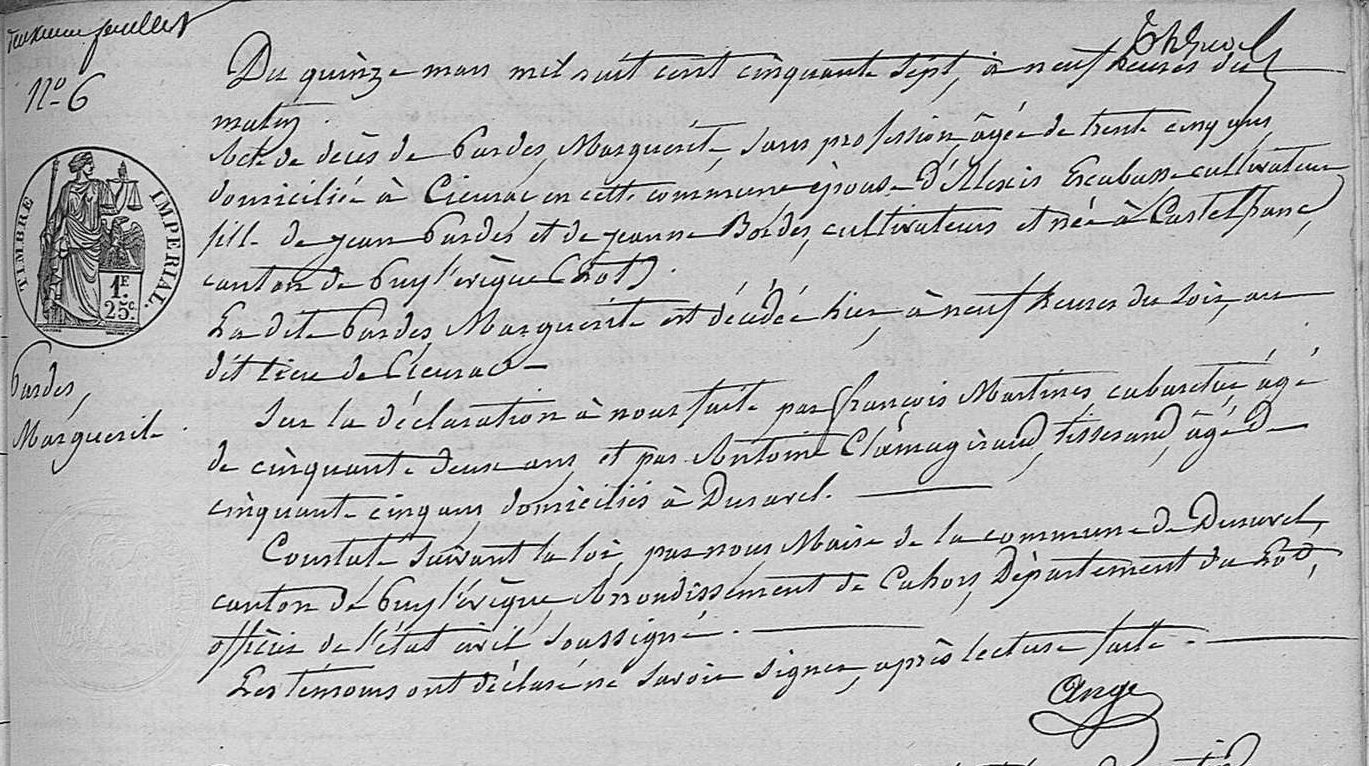 Deuxième feuillet
N° 6
Du quinze mars mil huit cent cinquante sept, à neuf heures du
matin.
Acte de décès de Pardes, Marguerite, sans profession, âgée de trente cinq ans,
domiciliée à Cieurac en cette commune épouse d'Alexis Escabasse cultivateur
fille de jean Pardes et de jeanne Bordes, cultivateurs et née à Castelfranc,
canton de Puy l'evèque (Lot).
La dite Pardes, Marguerite est décédée hier, à neuf heures du soir, au
dit lieu de Cieurac
Sur la déclaration à nous faite par françois Martines cabaretier, âgé
de cinquante deux ans, et par Antoine Clamagirand, tisserand, âgé de
cinquante cinq ans, domiciliés à Duravel.
Constaté suivant la loi, par nous Maire de la commune de Duravel,
canton de Puy l'évèque, Arrondissement de Cahors, Département du Lot,
officier de l'état civil soussigné.
Les témoins ont déclaré ne savoir signer, après lecture faite.
Ange
TIMBRE IMPERIAL
1F.
25c.
Pardes,
Marguerite